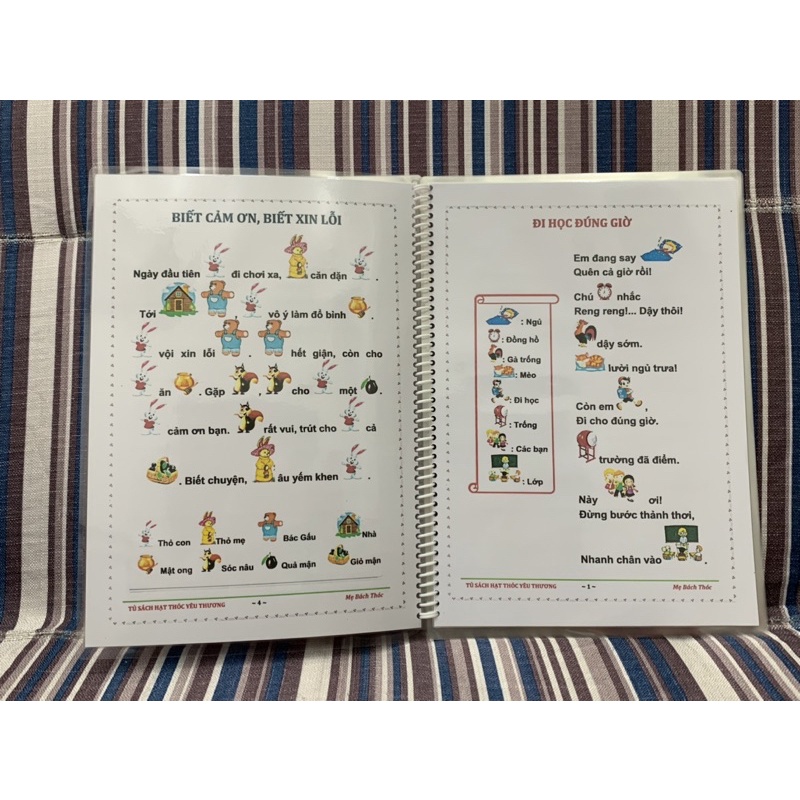 BIẾT CẢM ƠN, BIẾT XIN LỖI
Ngày đầu tiên đi chơi xa, căn dặn .
Tới vô ý làm đổ bình .
vội xin lỗi . hết giận, còn cho
ăn . Gặp , cho một .
cảm ơn bạn. rất vui, trút cho cả
. Biết chuyện, âu yếm khen .
Thỏ con Thỏ mẹ Bác Gấu Nhà
Mật ong Sóc nâu Quả mận Giỏ mận
TỦ SÁCH HẠT THÓC YÊU THƯƠNG - 4 - Mẹ Bách Thóc
ĐI HỌC ĐÚNG GIỜ
Em đang say
Quên cả giờ rồi!
Chú nhắc
Reng reng!... Dậy thôi!
dậy sớm.
lười ngủ trưa!
Còn em ,
Đi cho đúng giờ.
trường đã điểm.
Này ơi!
Đừng bước thảnh thơi,
Nhanh chân vào .
: Ngủ
: Đồng hồ
: Gà trống
: Mèo
: Đi học
: Trống
: Các bạn
: Lớp
TỦ SÁCH HẠT THÓC YÊU THƯƠNG - 1 - Mẹ Bách Thóc